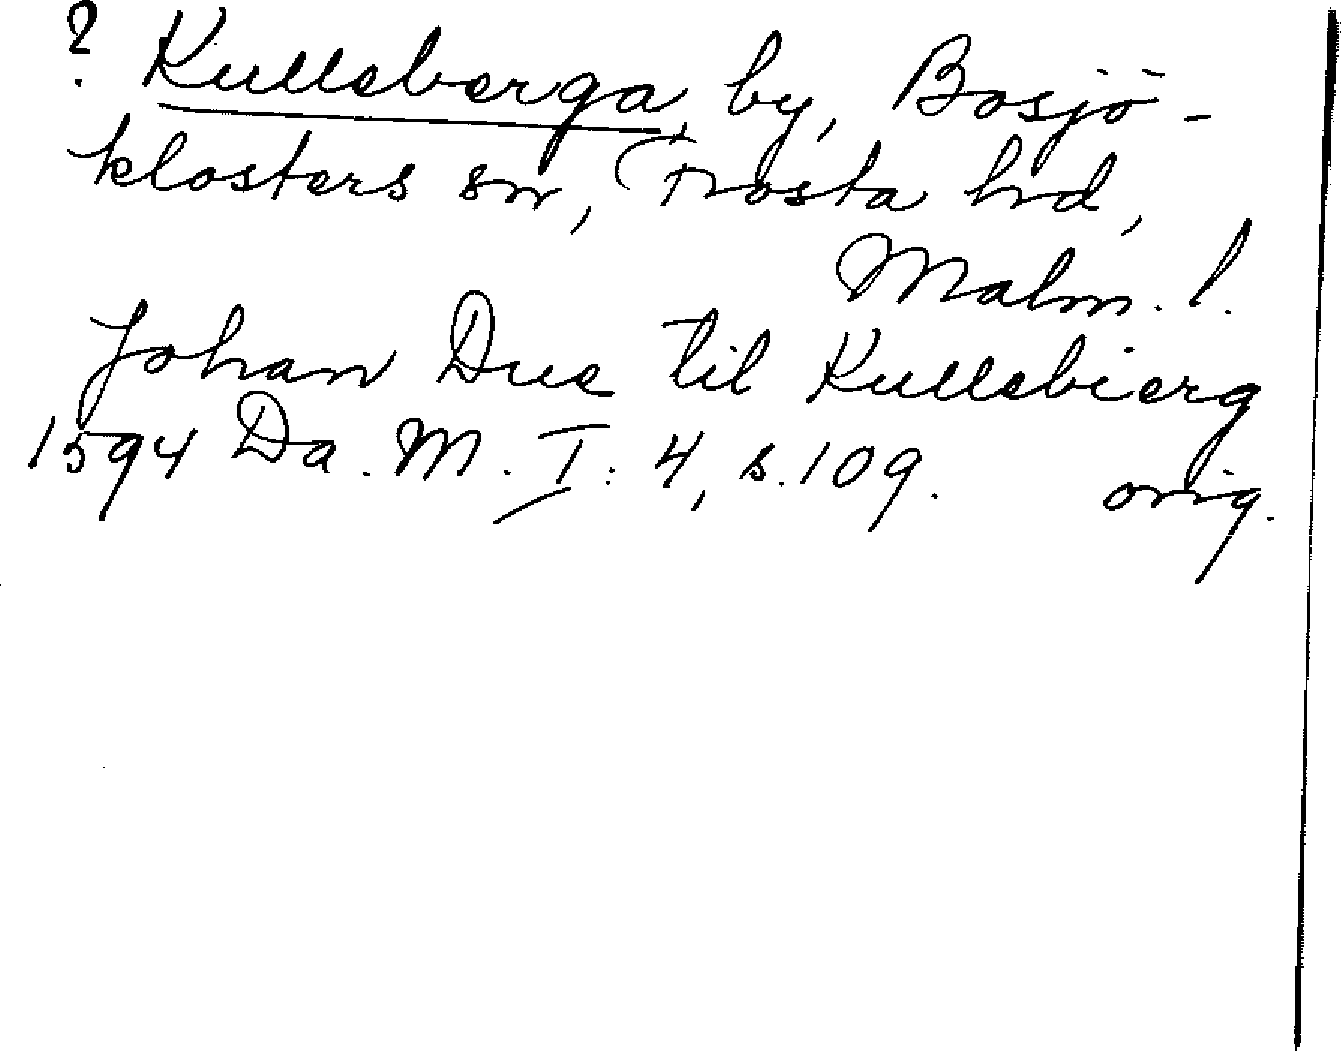 ? Kullsberga, by, Bosjö-
klosters sn, Frosta hd,
Malm. l.
Johan Due til Kullsbierg
1594 Da. M. I: 4, s. 109. orig.